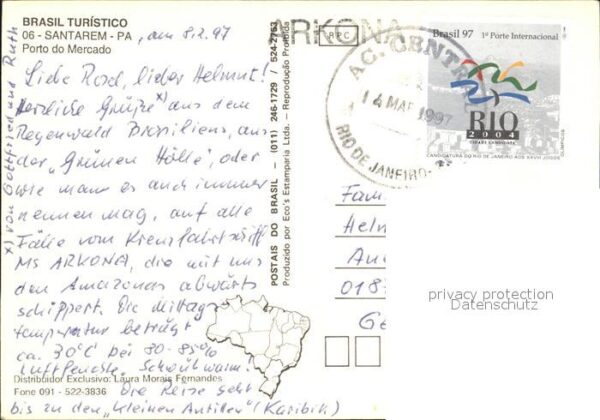 BRASIL TURÍSTICO
06 - SANTAREM - PA , am 8.2.97
Porto do Mercado
Liebe Rosel, lieber Helmut!
Herzliche Grüße x) aus dem
Regenwald Brasiliens, aus
der "Grünen Hölle", oder
wie man es auch immer
nennen mag, auf alle
Fälle vom Kreuzfahrtschiff
MS ARKONA, die mit uns
den Amazonas abwärts
schippert. Die Mittags-
temperatur beträgt
ca. 30°C bei 80-85%
Luftfeuchte. Schön warm!
Distribuidor Exclusivo: Laura Morais Fernandes
Fone 091 - 522-3836 Die Reise geht
bis zu den "kleinen Antillen" (Karibik)
x) von Gottfried und Ruth
POSTAIS DO BRASIL - (011) 246-1729 / 524-2763
Produzido por Eco's Estamparia Ltda. - Reprodução Proibida
ARKONA
RPC
AC. CENTRAL
14 MAR 1997
RIO DE JANEIRO-
Brasil 97 1º Porte Internacional
RIO
2004
CIDADE CANDIDATA
CANDIDATURA DO RIO DE JANEIRO AOS XXVIII JOGOS
OLÍMPICOS
Fam
Helm
An
0187
Ge
privacy protection
Datenschutz